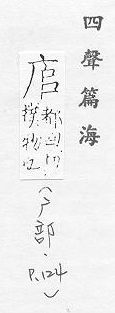 四聲篇海
都回切
撲物也
(户部.
P.124)